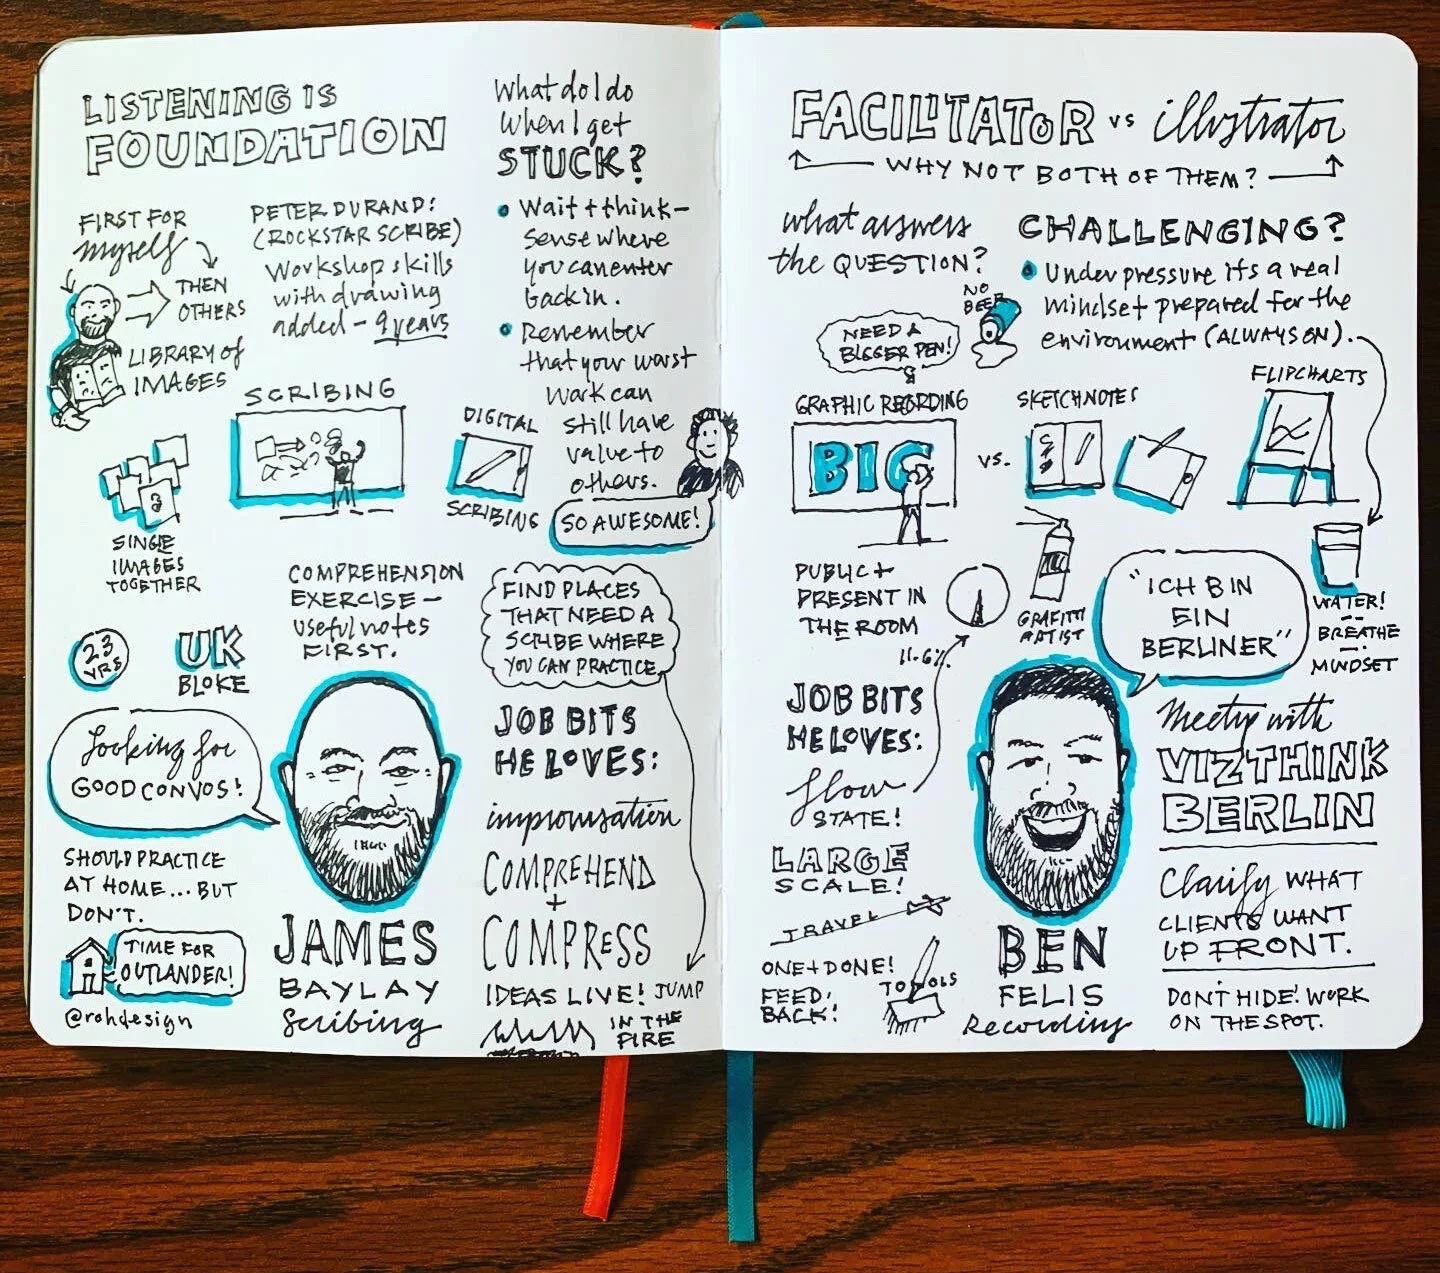 LISTENING IS
FOUNDATION
FIRST FOR
myself
THEN
OTHERS
LIBRARY of
IMAGES
PETER DURAND:
(ROCKSTAR SCRIBE)
Workshop skills
with drawing
added – 9 years
What do I do
When I get
STUCK?
Wait + think –
sense where
you can enter
back in.
Remember
that your worst
work can
still have
value to
others.
SO AWESOME!
SCRIBING
DIGITAL
SCRIBING
SINGLE
IMAGES
TOGETHER
COMPREHENSION
EXERCISE –
useful notes
FIRST.
FIND PLACES
THAT NEED A
SCRIBE WHERE
YOU CAN PRACTICE
23
YRS
UK
BLOKE
Looking for
GOOD CONVOS!
SHOULD PRACTICE
AT HOME... BUT
DON'T.
TIME FOR
OUTLANDER!
@rohdesign
JAMES
BAYLAY
Scribing
JOB BITS
HE LOVES:
improvisation
COMPREHEND
+
COMPRESS
IDEAS LIVE!
JUMP
IN THE
FIRE
FACILITATOR vs illustrator
WHY NOT BOTH OF THEM?
what answers
the QUESTION?
CHALLENGING?
Under pressure its a real
mindset prepared for the
environment (ALWAYS ON).
NO
BEER
NEED A
BIGGER PEN!
GRAPHIC RECORDING
BIG
vs.
SKETCHNOTES
FLIPCHARTS
PUBLIC +
PRESENT IN
THE ROOM
11.6%
GRAFITTI
ARTIST
"ICH BIN
EIN
BERLINER"
WATER!
BREATHE
MINDSET
JOB BITS
HE LOVES:
flow
STATE!
LARGE
SCALE!
TRAVEL
ONE + DONE!
FEED,
BACK!
TOOLS
BEN
FELIS
Recording
Meetup with
VIZTHINK
BERLIN
Clarify WHAT
CLIENTS WANT
UP FRONT.
DON'T HIDE! WORK
ON THE SPOT.